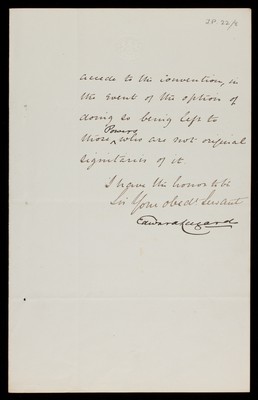 20.22/4
accede to the convention, in
the event of the option of
doing so being left to
Powers
those ^ who are not original
signitaries of it.
I have the honor to be
Sir Your obedt Servant
Edward Lugard